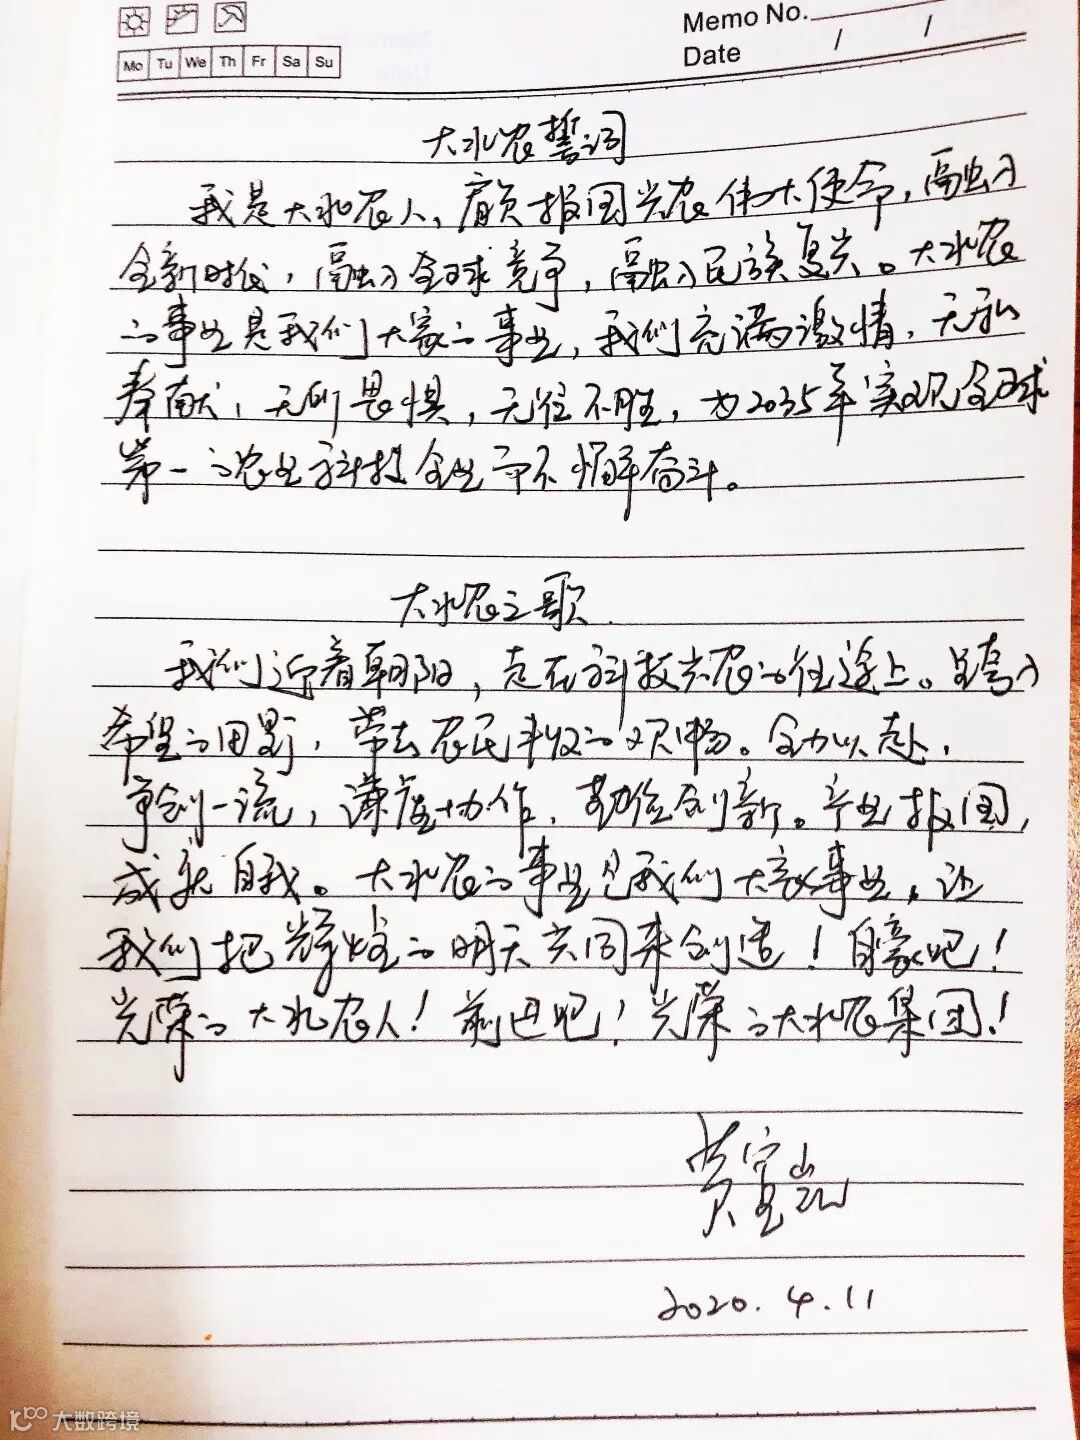 Memo No.
Mo Tu We Th Fr Sa Su
Date / /
大北农誓词
我是大北农人，肩负报国兴农伟大使命，融入
全新时代，融入全球竞争，融入民族复兴。大北农
的事业是我们大家的事业，我们充满激情，无私
奉献，无所畏惧，无往不胜，为2035年实现全球
第一的农业科技企业而不懈奋斗。
大北农之歌
我们迎着朝阳，走在科技兴农的征途上。
希望的田野，带去农民丰收的欢畅。全力以赴，
争创一流，谦虚协作，勤俭创新。产业报国，
成就自我。大北农的事业是我们大家事业，让
我们把辉煌的明天共同来创造！自豪吧！
光荣的大北农人！前进吧！光荣的大北农集团！
2020.4.11
大数跨境